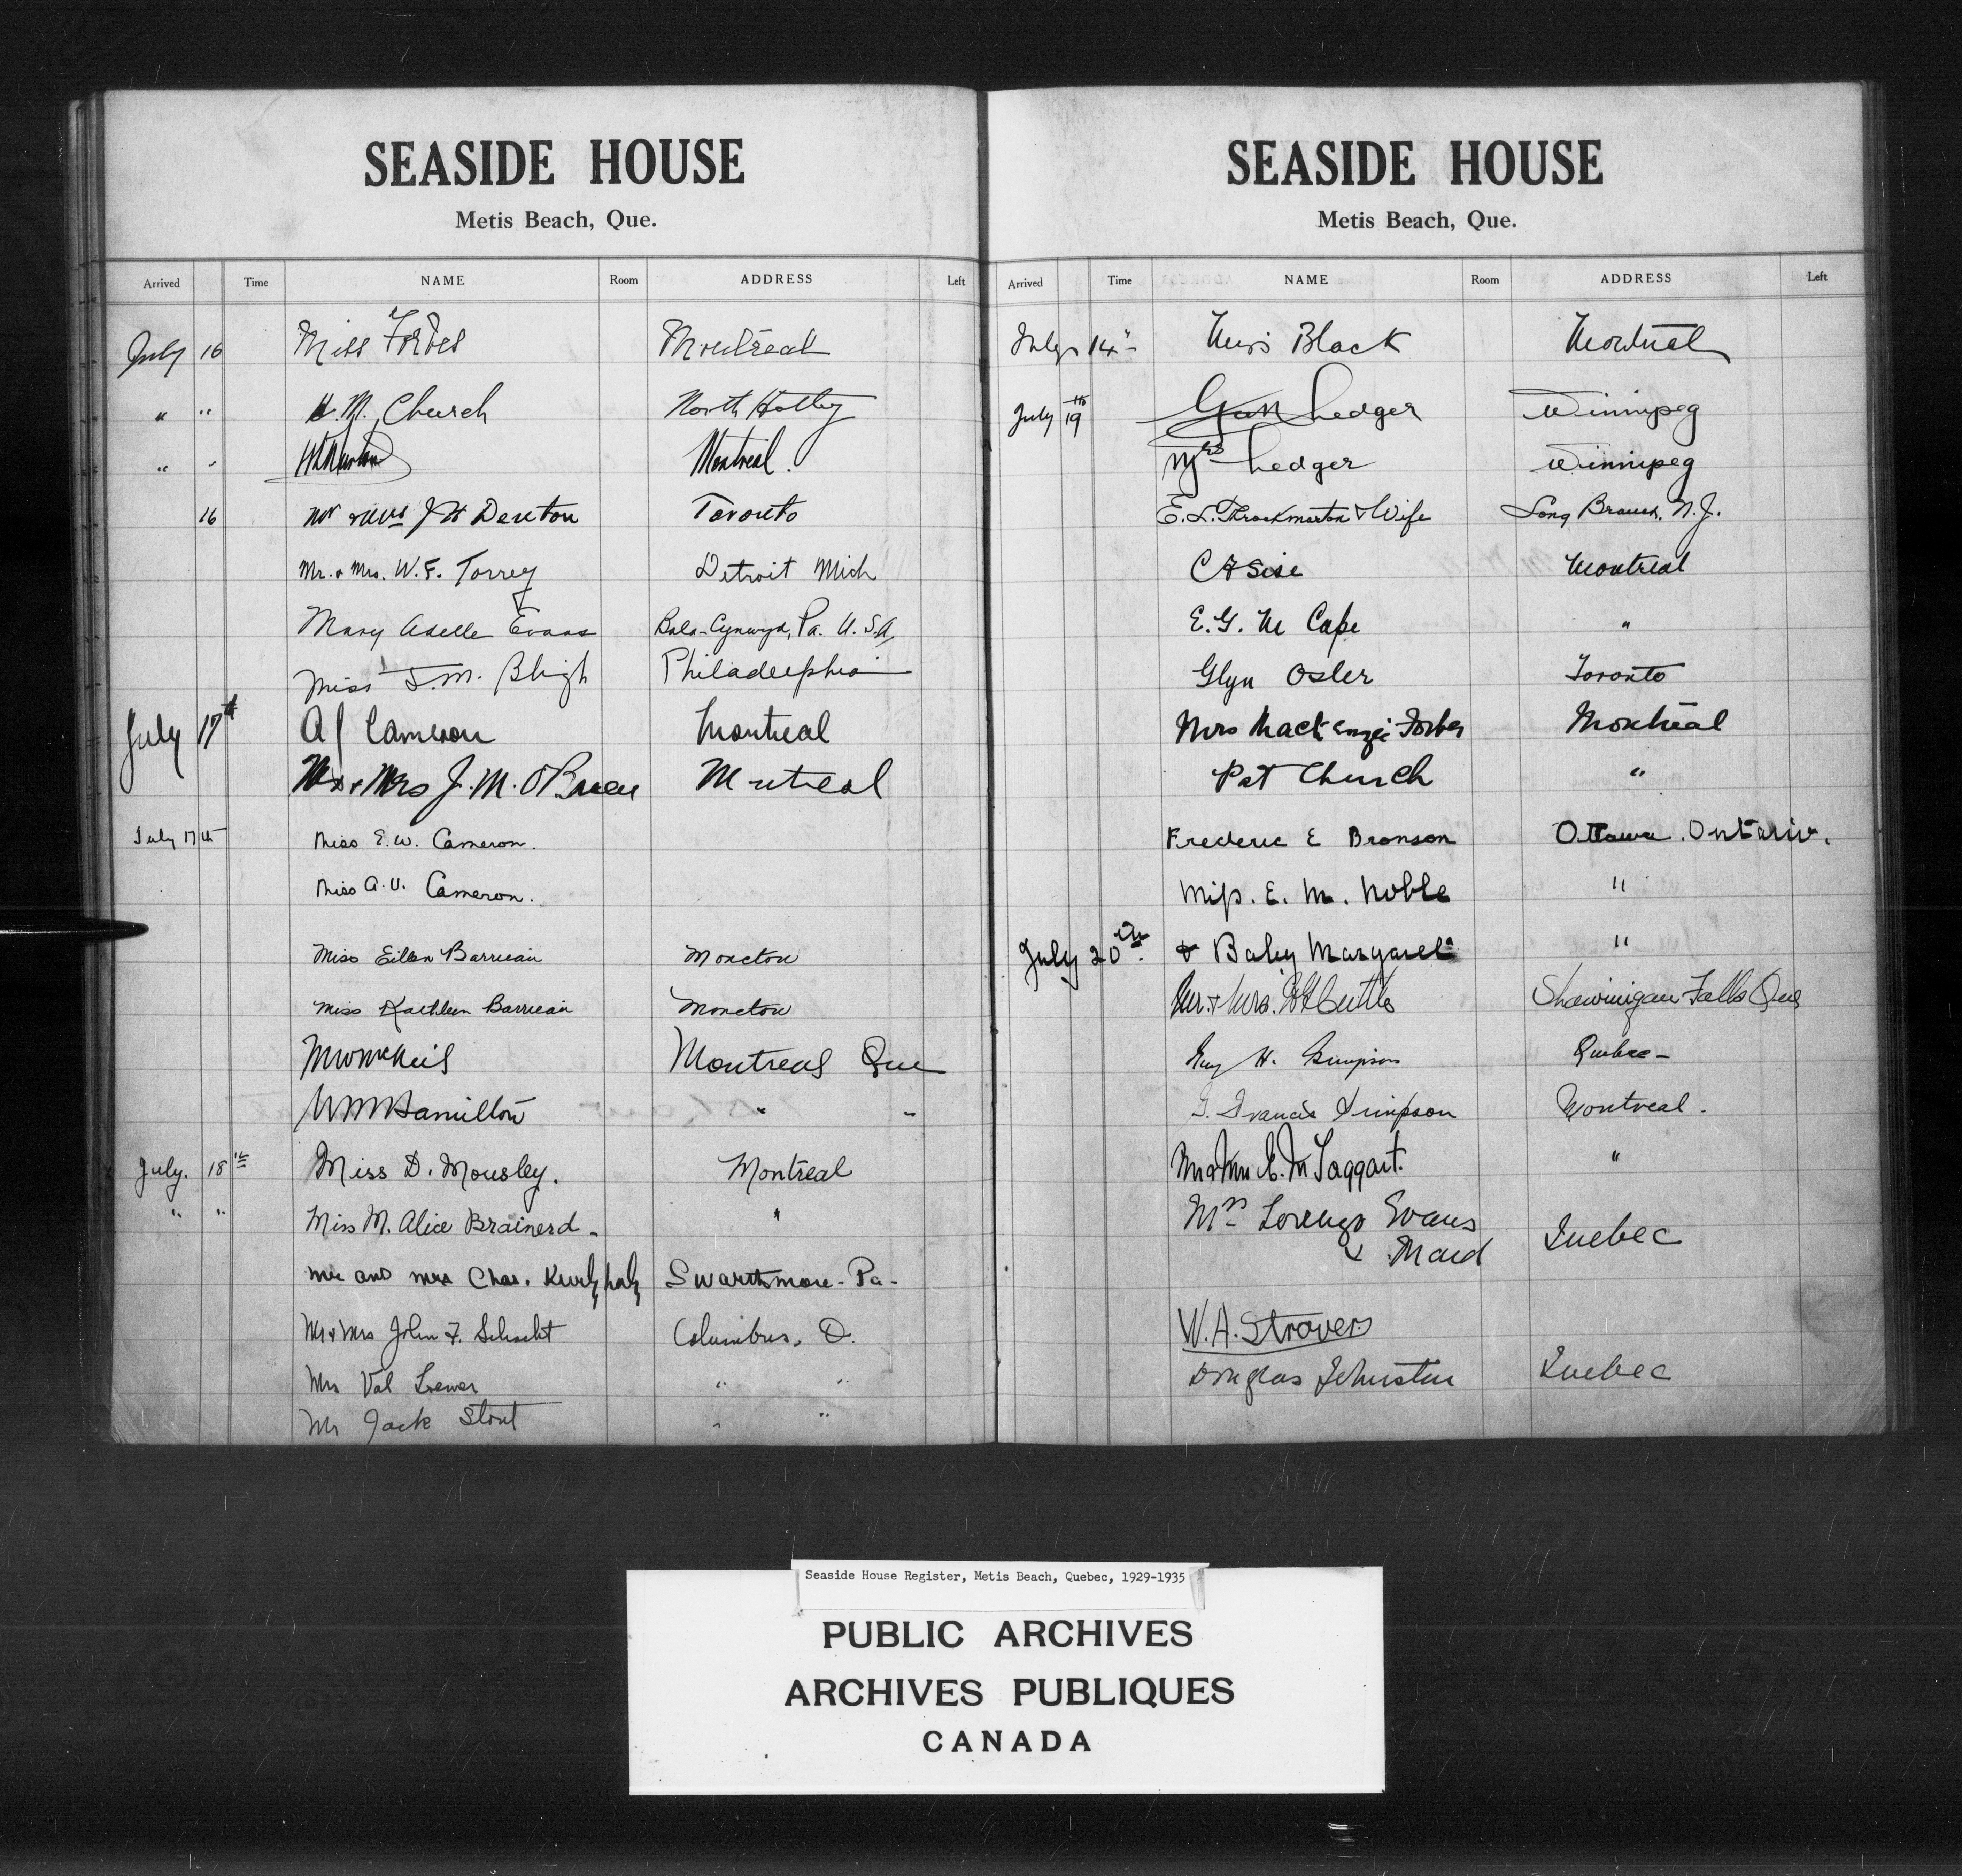 SEASIDE HOUSE
Metis Beach, Que.
Arrived Time NAME Room ADDRESS Left
July 16 Miss Forbes Montreal
" " H. M. Church North Hatley
" " Montreal.
16 Mr & Mrs J H Denton Toronto
Mr. & Mrs. W. F. Torrey Detroit Mich
Mary Adelle Evans Bala-Cynwyd, Pa. U.S.A.
Miss L. M. Bligh Philadelphia
July 17th A J Cameron Montreal
Mr & Mrs J. M. O'Brien Montreal
July 17th Miss E. W. Cameron.
Miss A. V. Cameron.
Miss Eileen Barrieau Moncton
Miss Kathleen Barrieau Moncton
M W McNeil Montreal Que
W M Hamilton " "
July. 18th Miss D. Mousley. Montreal
" " Miss M. Alice Brainerd - "
Mr and Mrs Chas. Kurtzhalz Swarthmore - Pa -
Mr & Mrs John F. Schacht Columbus, O.
Mrs Val Loewer " "
Mr Jack Stout " "
SEASIDE HOUSE
Metis Beach, Que.
Arrived Time NAME Room ADDRESS Left
July 14" Miss Black Montreal
July 19th Ledger Winnipeg
Mrs Ledger Winnipeg
E. L. Throckmorton & Wife Long Branch, N.J.
C F Sise Montreal
E. G. M Cape "
Glyn Osler Toronto
Mrs Mackenzie Forbes Montreal
Pat Church "
Frederic E Bronson Ottawa. Ontario.
Miss. E. M. Noble "
July 20th. & Baby Margaret "
Mr. & Mrs. Cuttle Shawinigan Falls Que
Guy H. Simpson Quebec -
G. Francis Simpson Montreal.
Mr & Mrs E. M Taggart. "
Mrs Lorenzo Evans
& Maid Quebec
W. A. Strovers
Douglas Johnston Quebec
Seaside House Register, Metis Beach, Quebec, 1929-1935
PUBLIC ARCHIVES
ARCHIVES PUBLIQUES
CANADA